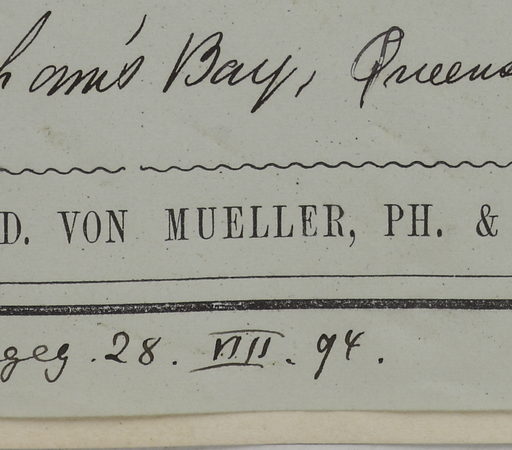 ham's Bay, Queens
D. VON MUELLER, PH. &
geg. 28. VIII. 94.